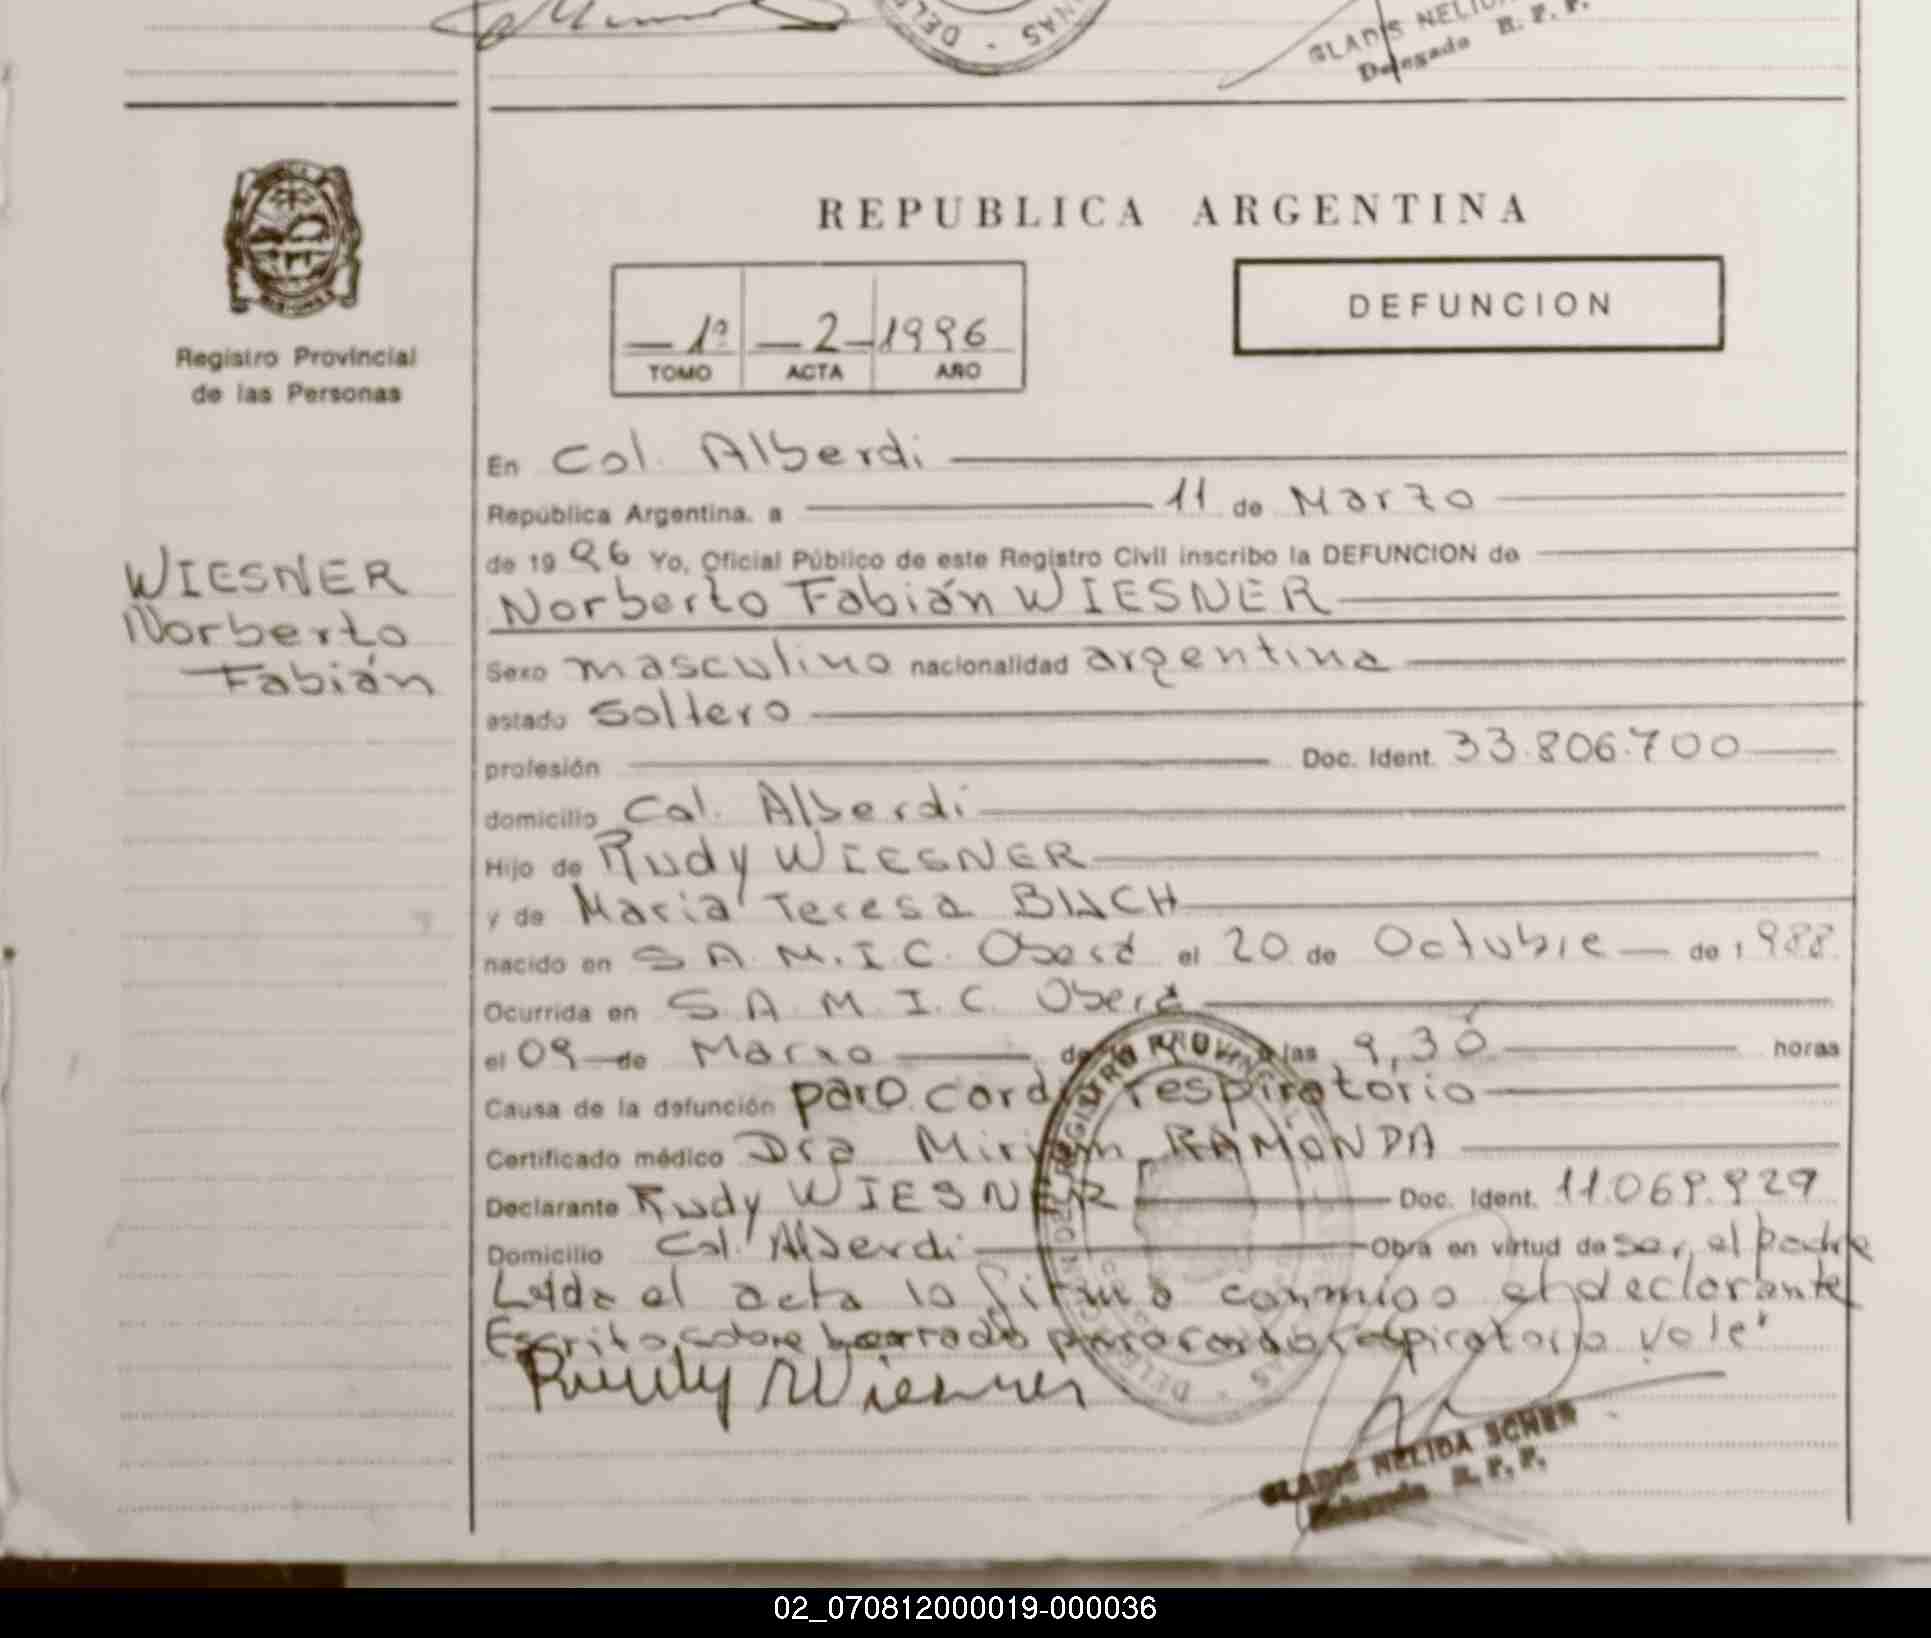 DEL
NAS
GLADIS NELIDA
Delegado R. P. P.
Registro Provincial
de las Personas
REPUBLICA ARGENTINA
— 1º — 2 — 1996
TOMO ACTA AÑO
DEFUNCION
WIESNER
Norberto
Fabián
En Col. Alberdi
República Argentina. a 11 de Marzo
de 19 96 Yo, Oficial Público de este Registro Civil inscribo la DEFUNCION de
Norberto Fabián WIESNER
Sexo masculino nacionalidad argentina
estado Soltero
profesión Doc. Ident. 33.806.700
domicilio Col. Alberdi
Hijo de Rudy WIESNER
y de Maria Teresa
nacido en S.A.M.I.C. Oberá el 20 de Octubre — de 1988
Ocurrida en S.A.M.I.C. Oberá
el 09 — de Marzo de a las 9,30 horas
Causa de la defunción paro cardi respiratorio
Certificado médico Dra Miriam RAMONDA
Declarante Rudy WIESNER Doc. Ident. 11.069.929
Domicilio Col. Alberdi Obra en virtud de ser el padre
Leída el acta la firma conmigo el declarante
Escrito sobre borrado paro cardo respiratorio vale
Rudy Wiesner
GLADIS NELIDA
R. P. P.
02_070812000019-000036